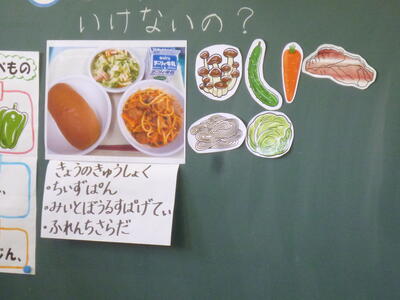 いけないの？
べもの
きょうのきゅうしょく
・ちぃずぱん
・みぃとぼうるすぱげてぃ
・ふれんちさらだ
じん、